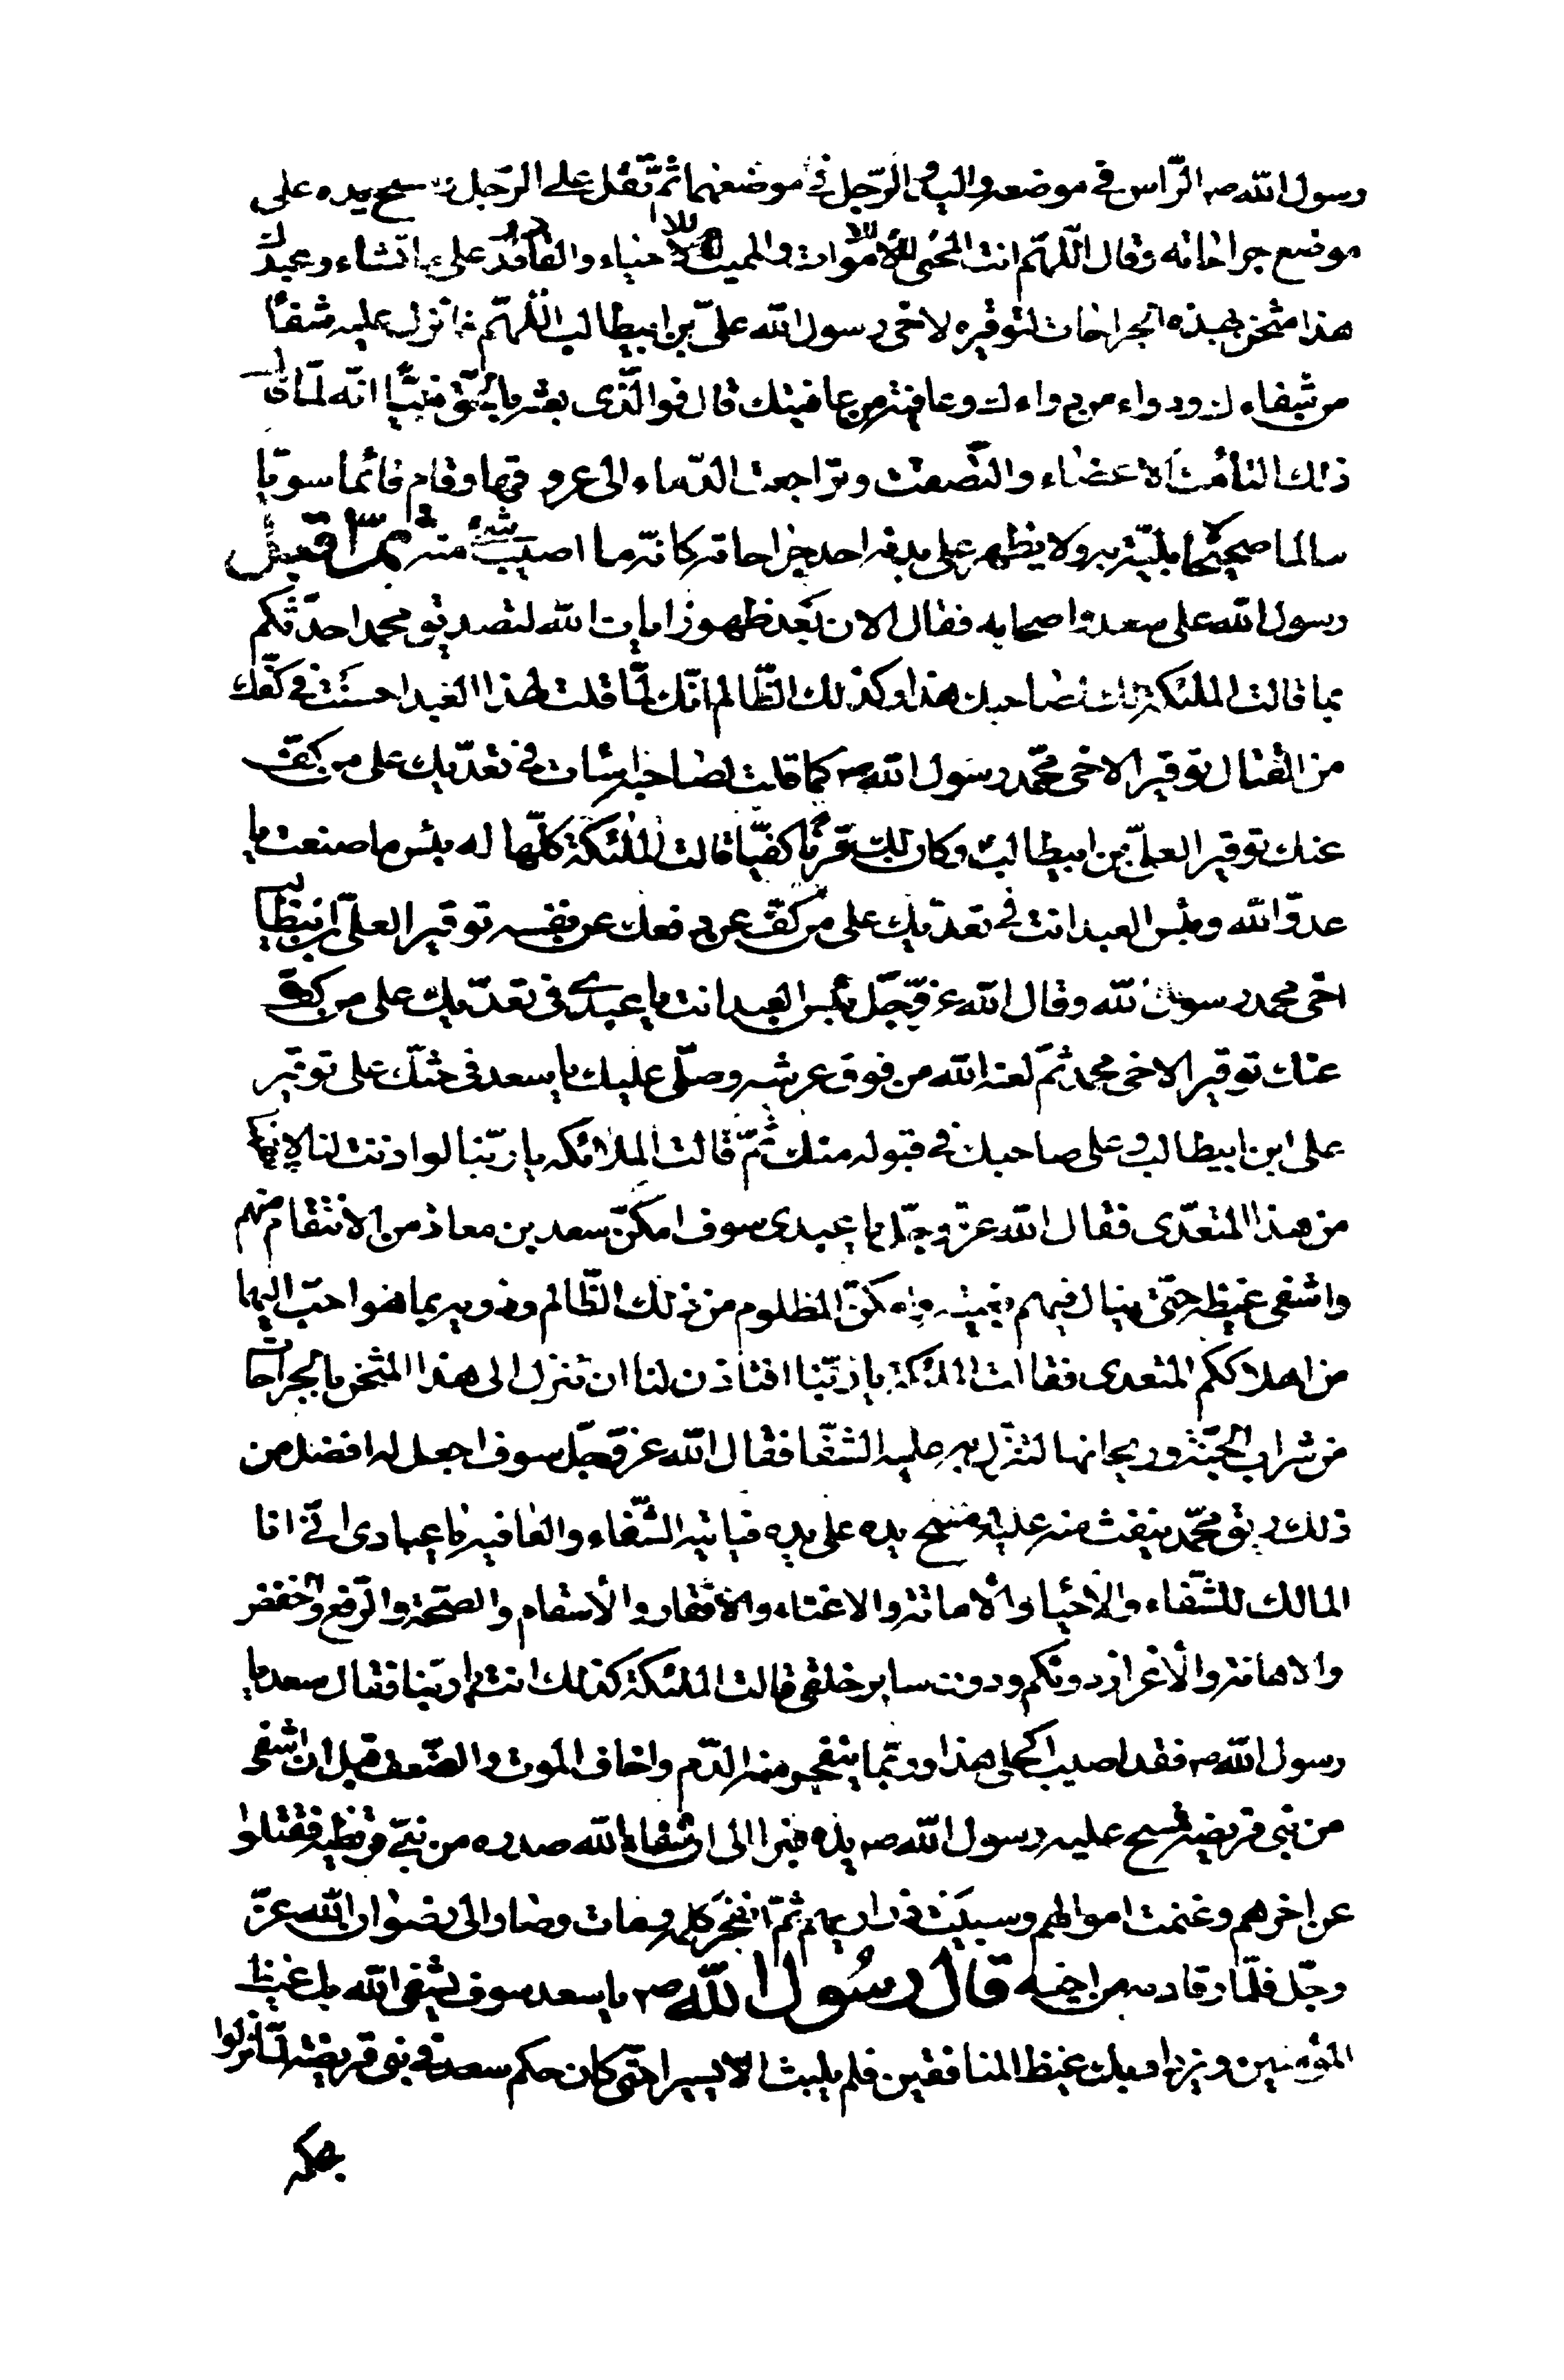 رسول الله ص الرّاس في موضعه واليد والرّجل في موضعهما ثمّ تفل على الرّجل و مسح يده على
موضع جراحاته وقال اللّهمّ انت المحيي للاموات والمميت للاحياء والقادر على ما تشاء وعبدك
هذا مثخن بهذه الجراحات لتوقيره لاخي رسول الله عليّ بن ابيطالب اللّهمّ فانزل عليه شفاء
من شفاءك ودواء من دواءك وعافية من عافيتك قال فوالّذي بعثه بالحقّ نبيّا انّه لمّا قال
ذلك التأمت الاعضاء والتصقت وتراجعت الدّماء الى عروقها وقام قائما سويّا
سالما صحيحا لا بليّة به ولا يظهر على بدنه احد جراحاته كانّه ما اصيب شئ منه ثمّ اقبل
رسول الله على سعد واصحابه فقال الان بعد ظهور ايات الله لتصديق محمد احدّثكم
بما قالت الملئكة لك لصاحبك هذا وكذلك الظّالم انّك لمّا قلت لهذا العبد احسنت في كفّك
من القتال توقيرا لاخي محمّد رسول الله ص كما قلت لصاحبه اسات في تعدّيك على من كفّ
عنك توقيرا لعليّ بن ابيطالب وكان لك قرنا كفيّا قالت الملئكة كلّها له بئس ما صنعت يا
عدوّ الله وبئس العبد انت في تعدّيك على من كفّ عن دفعك عن نفسه توقيرا لعليّ بن ابيطالب
اخي محمد رسول الله وقال الله عزّ وجّل بئس العبد انت يا عبدي في تعدّيك على من كفّ
عنك توقيرا لاخي محمد ثمّ لعنه الله من فوق عرشه وصلّى عليك يا سعد في حثّك على توقير
على ابن ابيطالب وعلى صاحبك في قبوله منك ثمّ قالت الملائكه يا ربّنا لو اذنت لنا لانتقمنا
من هذا المتعدّى فقال الله عزّ وجّل يا عبادى سوف امكنّ سعد بن معاذ من الانتقام منهم
واشفى غيظه حتّى ينال فيهم بغيته وامكنّ المظلوم من ذلك الظّالم وذويه بما هو احبّ اليهما
من اهلاككم المتعدى فقالت الملئكة يا ربّنا افتاذن لنا ان ننزل الى هذا المثخن بالجراحات
من شراب الجنّة وريحانها لننزل به عليه الشّفا فقال الله عز وجّل سوف اجعل له افضل من
ذلك ريق محمّد ينفث منه عليه ومسح يده على يده فياتيه الشّفاء والعافيه يا عبادى انّى انا
المالك للشّفاء والأحيا والأماتة والاغناء والافقار والأسقام والصّحة والرّفع والخفض
والاهانة والأعزاز دونكم ودون ساير خلقى قالت الملئكة كذلك انت يا ربّنا فقال سعد يا
رسول الله ص فقد اصيب اكحلى هذا وربّما ينفجر منه الدّم واخاف الموت والضّعف قبل ان اشفى
من بنى قريضة فمسح عليه رسول الله ص يده فبرا الى ان شفا الله صدره من بنى قريظة فقتلوا
عن اخرهم وغنمت اموالهم وسبيت ذراريهم ثمّ انفجر كلمه ومات وصار الى رضوان الله عزّ
وجّل فلمّا رقا دمه من جراحه قال رسول الله ص يا سعد سوف يشفى الله بك غيظ
المؤمنين ويزداد بك غيظ المنافقين فلم يلبث الّا يسيرا حتّى كان حكم سعد في بنى قريضة لمّا نزلوا
بحكمه